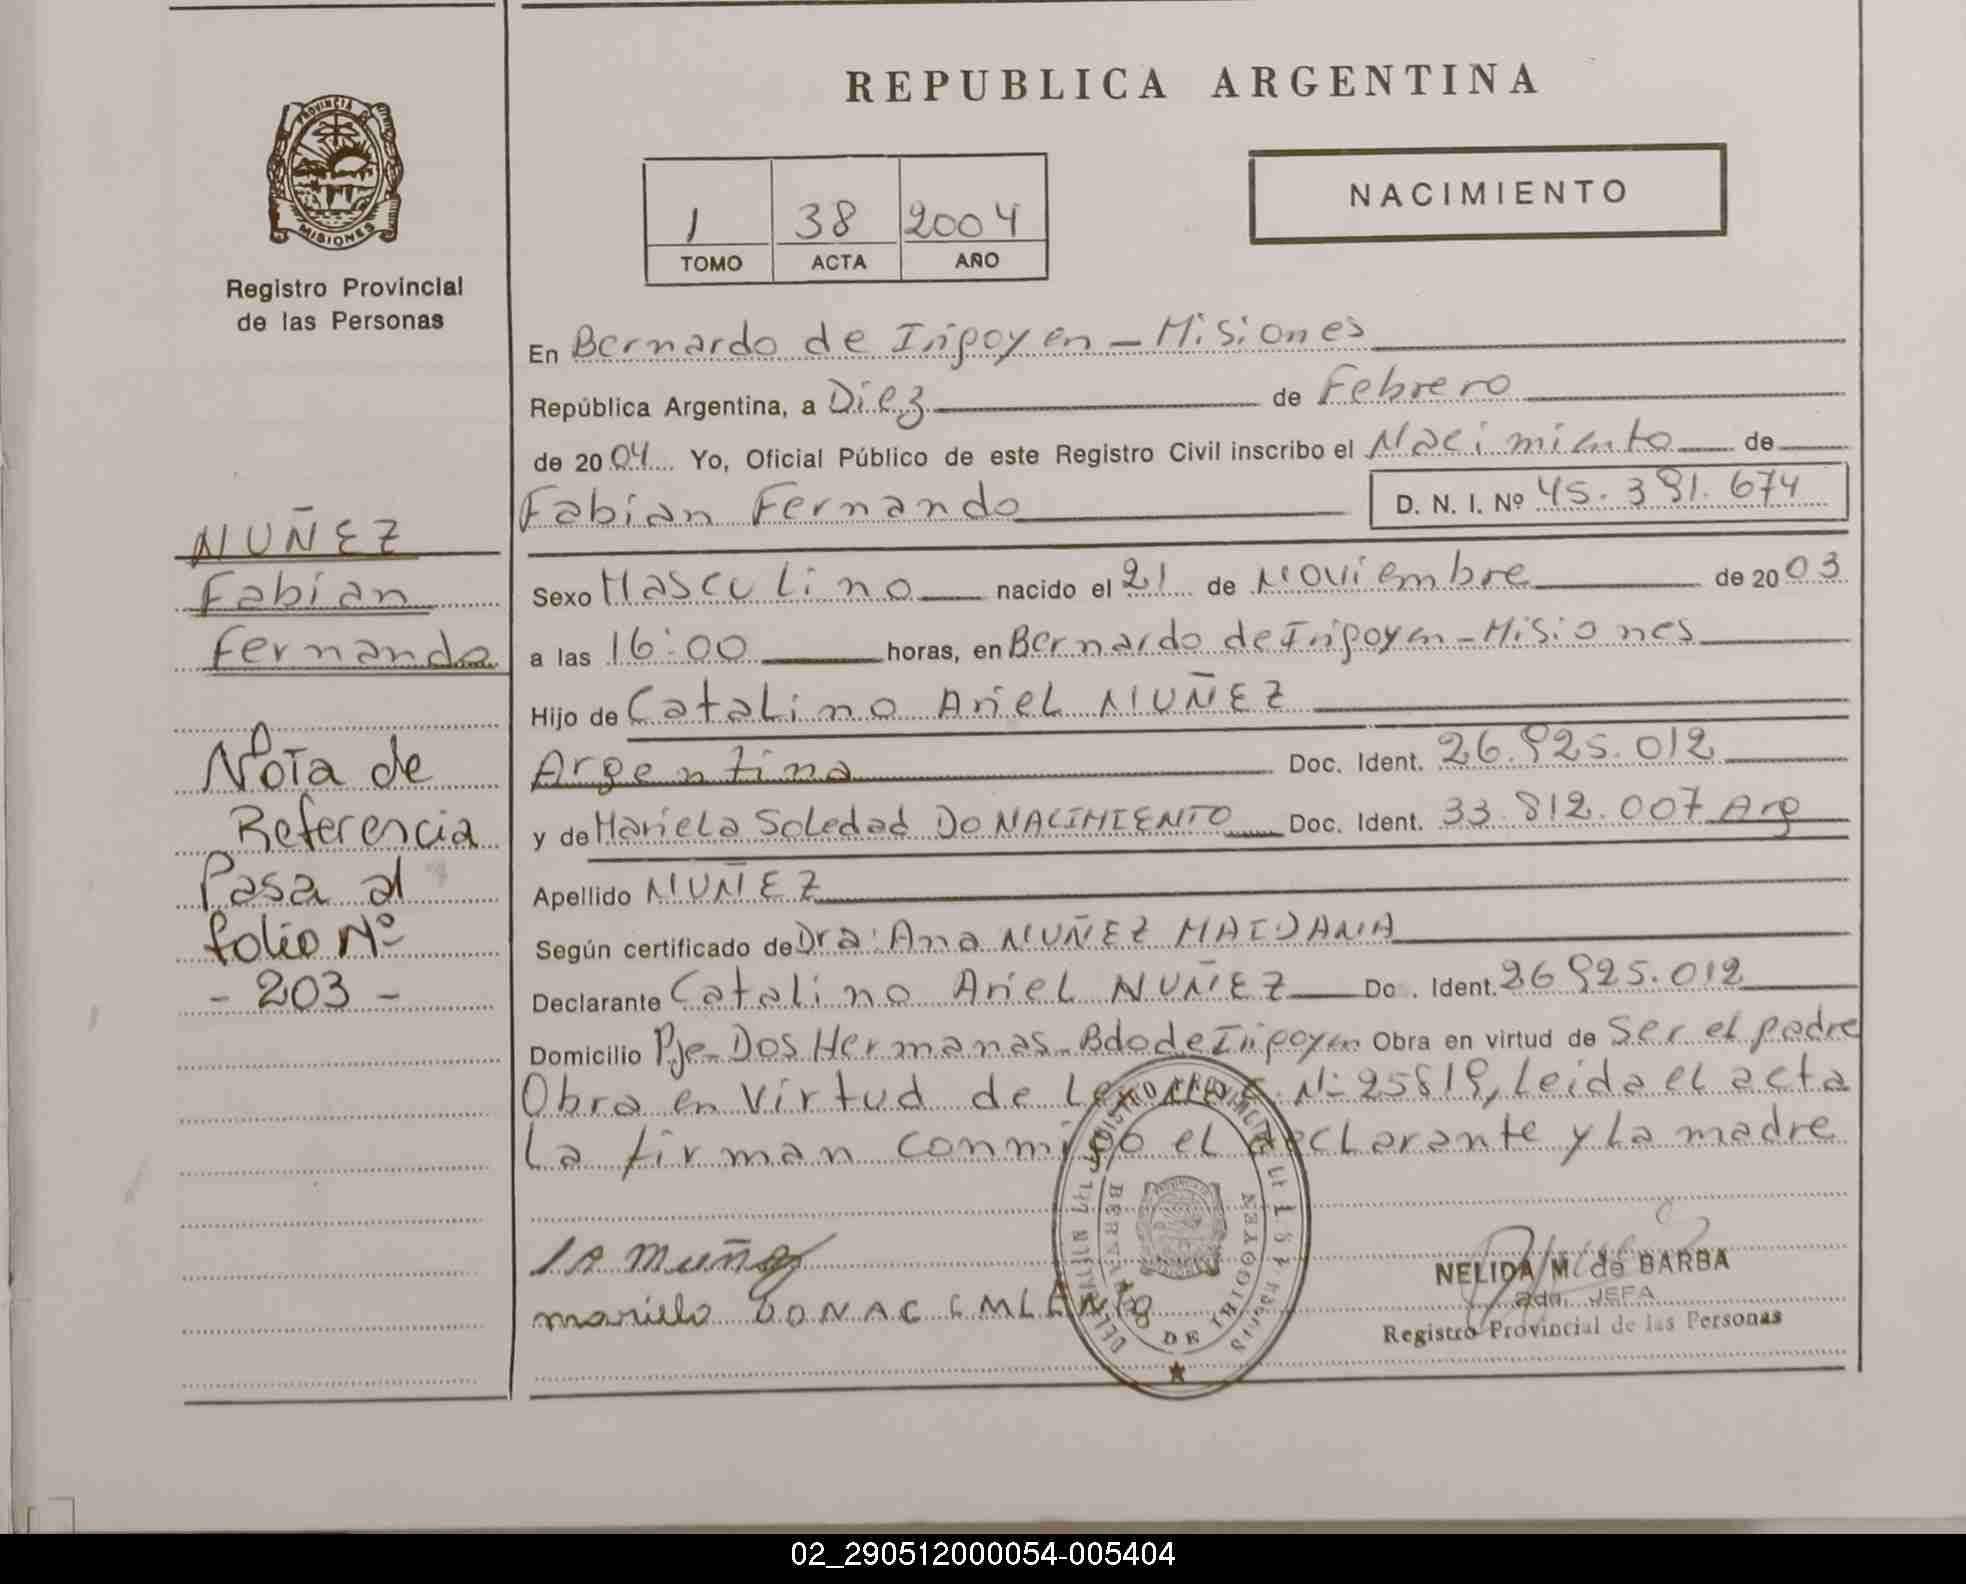 REPUBLICA ARGENTINA
PROVINCIA
MISIONES
Registro Provincial
de las Personas
1 38 2004
TOMO ACTA AÑO
NACIMIENTO
En Bernardo de Irigoyen - Misiones
República Argentina, a Diez de Febrero
de 2004 Yo, Oficial Público de este Registro Civil inscribo el Nacimiento de
Fabian Fernando D. N. I. Nº 45.391.674
Sexo Masculino nacido el 21 de Noviembre de 2003
a las 16:00 horas, en Bernardo de Irigoyen - Misiones
Hijo de Catalino Ariel NUÑEZ
Argentina Doc. Ident. 26.925.012
y de Mariela Soledad DO NACIMIENTO Doc. Ident. 33.812.007 Arg
Apellido NUÑEZ
Según certificado de Dra: Ana NUÑEZ MAIDANA
Declarante Catalino Ariel NUÑEZ Do . Ident. 26 925.012
Domicilio Pje. Dos Hermanas - Bdo de Irigoyen Obra en virtud de Ser el padre
Obra en virtud de Nº 25819, Leida el acta
La firman conmigo el declarante y La madre
NUÑEZ
Fabian
Fernando
Nota de
Referencia
Pasa al
folio Nº
- 203 -
mariela DONACIMIENTO
DE IRIGOYEN
NELIDA M. de BARBA
JEFA
Registro Provincial de las Personas
02_290512000054-005404